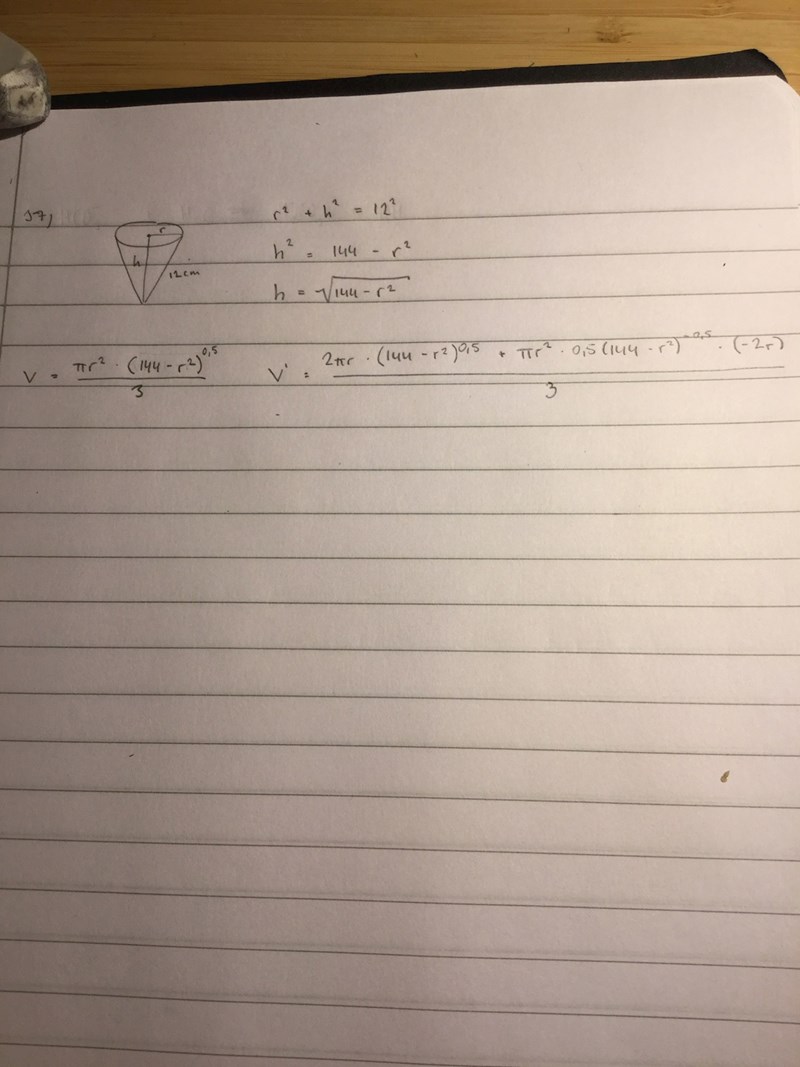 37)
r
h
12cm
r² + h² = 12²
h² = 144 - r²
h = √(144 - r²)
V = πr² · (144 - r²)^0,5 / 3
V' = 2πr · (144 - r²)^0,5 + πr² · 0,5 (144 - r²)^-0,5 · (-2r) / 3